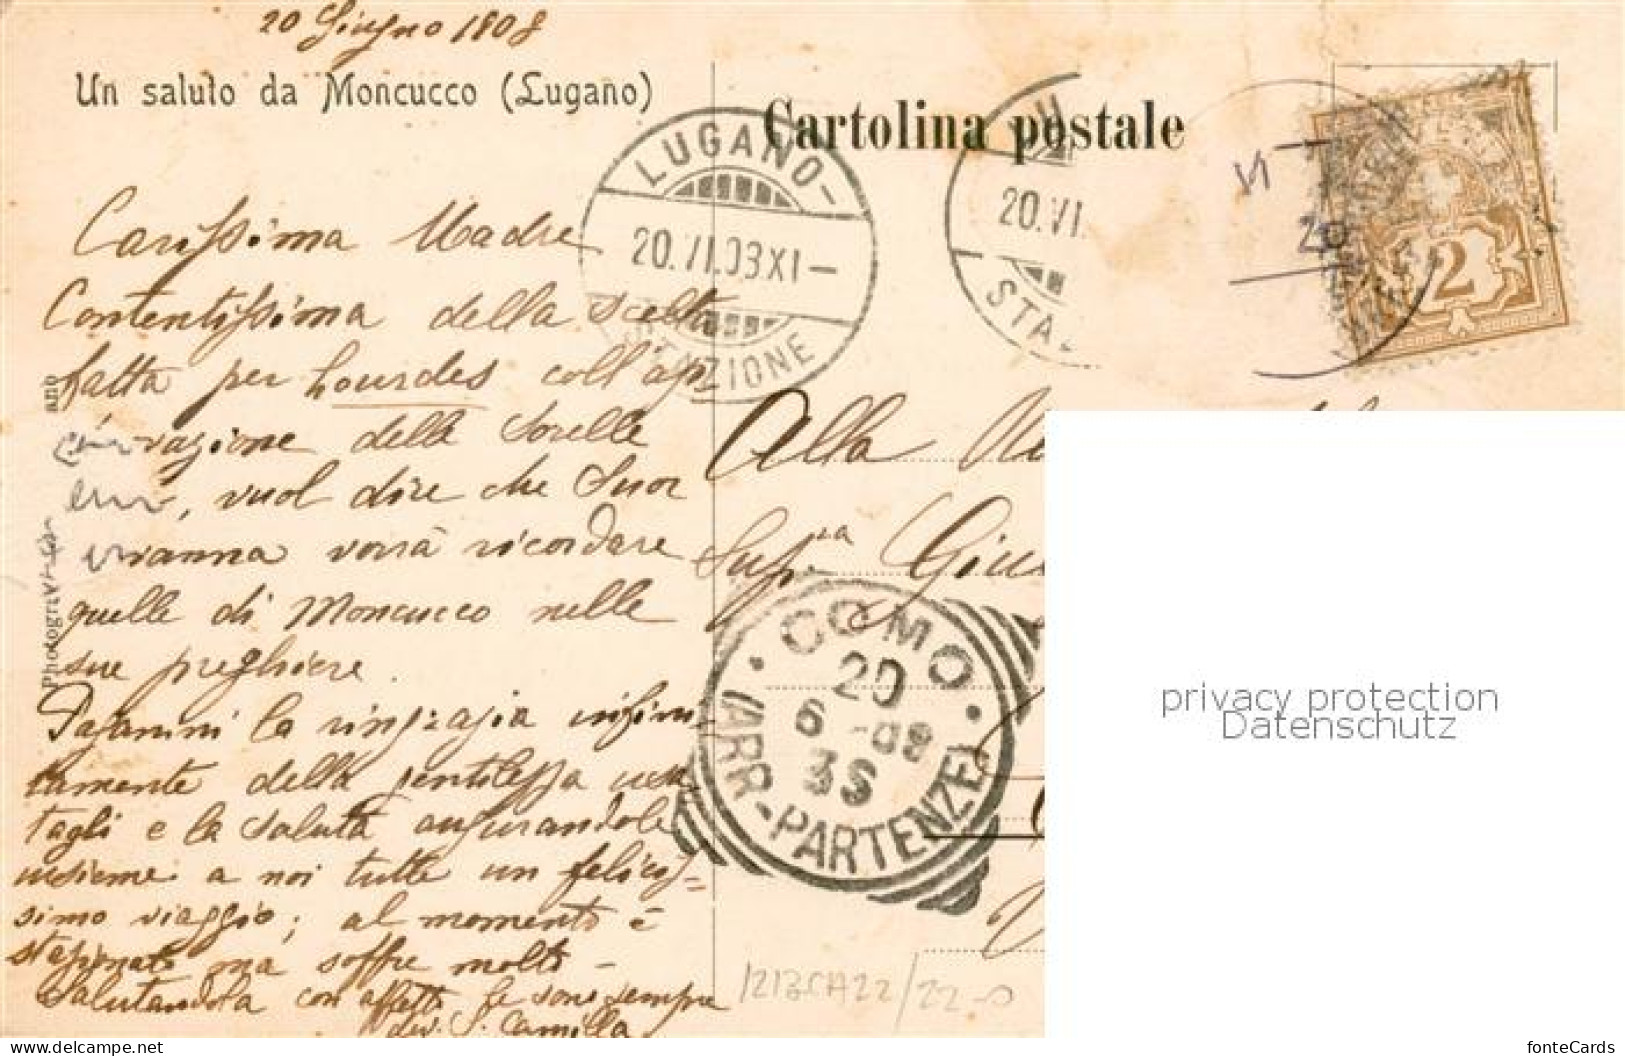 20 Giugno 1908
Un saluto da Moncucco (Lugano)
Cartolina postale
LUGANO-
20.VI.08XI-
STAZIONE
20.VI.
STAZ
VI
20
2
Carissima Madre
Contentissima della scelta
fatta per Lourdes coll'ap
vazione delle Sorelle
, vuol dire che Suor
vanna vorrà ricordare
quelle di Moncucco nelle
sue preghiere.
Paganini la ringrazia infini-
tamente della gentilezza usa
tagli e la saluta augurandole
insieme a noi tutte un felicis=
simo viaggio; al momento è
stazionato ma soffre molto -
Salutandola con affetto le sono sempre
dev. S. Camilla
Alla
Sup.ra Giu
COMO
20
6 -08
3S
(ARR-PARTENZE)
privacy protection
Datenschutz
www.delcampe.net
fonteCards